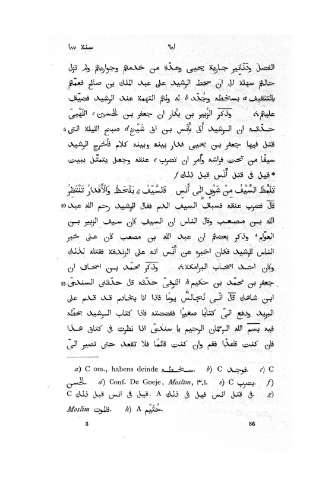 سنة ١٨٧ ٦٨١
الفضل ودنانير جارية يحيى وعدّة من خدمهم وجواريهم ولم تزل
حالهم سهلة الى ان سخط الرشيد على عبد الملك بن صالح فعمّهم
بالتثقيف بسخطه وجُدّد له ولهم التهمة عند الرشيد فضيّق
عليهم، وذكر الزبير بن بكار ان جعفر بن الحسين اللهبى
حدّثه ان الرشيد أُتى بأنس بن ابى شيخ صبح الليلة التى
قتل فيها جعفر بن يحيى فدار بينه وبينه كلام فأخرج الرشيد
سيفًا من تحت فراشه وأمر ان تضرب عنقه وجعل يتمثّل ببيت
قيل فى قتل أنس قبل ذلك
تلمّظ السيف من شوق الى أنس فالسيف يلحظ والأقدار تنتظر
قال فضرب عنقه فسبق السيف الدم فقال الرشيد رحم الله عبد
الله بن مصعب وقال الناس ان السيف كان سيف الزبير بن
العوّام، وذكر بعضهم ان عبد الله بن مصعب كان على خبر
الناس للرشيد فكان اخبره عن أنس انه على الزندقة فقتله لذلك
وكان احد اصحاب البرامكة، وذكر محمد بن اسحاق ان
جعفر بن محمد بن حكيم الكوفىّ حدّثه قال حدّثنى السندىّ
ابن شاهك قال انّى لجالس يومًا فاذا انا بخادم قد قدم على
البريد ودفع الىّ كتابًا صغيرًا ففضضته فاذا كتاب الرشيد بخطّه
فيه بسم الله الرحمن الرحيم يا سندىّ اذا نظرت فى كتابى هذا
فإن كنت قاعدًا فقم وان كنت قائمًا فلا تقعد حتى تصير الىّ
a) C om., habens deinde بسخطه. b) C فوجد. c) C
الحسن. d) Conf. De Goeje, Moslim, ٣٠٨. e) C يضرب. f)
C فى قتل انس قبل ذلك A قيل فى انس قبل ذلك. g)
Moslim فلوت. h) A حكيم.
3 86